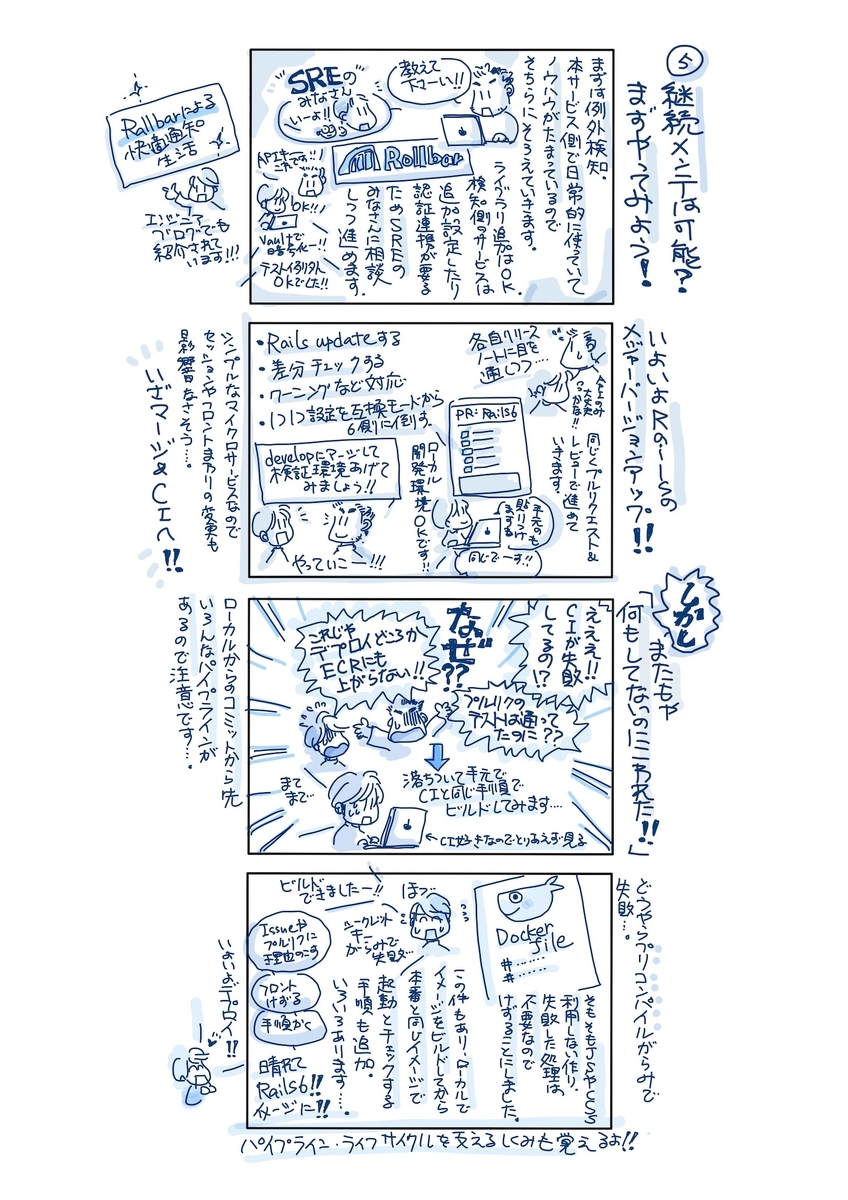 ⑤
継続メンテは可能?
まずやってみよう!
まずは例外検知.
本サービス側で日常的に使っていて
ノウハウがたまっているので
そちらにそろえていきます.
教えて
下さーい!!
"SREの
みなさん"
いーよ!!
Rollbar
ライブラリ追加はOK.
検知側のサービスは
追加設定したり
認証連携が要る
ためSREの
みなさんに相談
しつつ進めます.
APIキー
これです!!
OK!!!
Vaultで
暗号化ー!!
テスト例外
OKでした!!
Rallbarによる
快適通知
生活
エンジニア
ブログでも
紹介されて
います!!!
いよいよRailsの
メジャーバージョンアップ!!
各自リリース
ノートに目を
通しつつ…
同じくプルリクエスト&
レビューで進めて
いきます.
PR: Rails6
手元でも
貼りつけ
ますね
同じでーす!!
ローカル
開発環境OKです!!
・Rails updateする
・差分チェックする
・ワーニングなど対応
・1つ1つ設定を互換モードから
6側に倒す.
developにマージして
検証環境あげて
みましょう!!
やっていこー!!!
シンプルなマイクロサービスなので
セッションやフロントまわりの変更も
影響なさそう….
いざマージ&CIへ!!
しかし
またもや
「何もしてないのにこわれた!!」
えええ!!
CIが失敗
してるの!?
なぜ??
プルリクの
テストは通って
たのに??
これじゃ
デプロイどころか
ECRにも
上がらない!!
まてまて…
落ちついて手元で
CIと同じ手順で
ビルドしてみます….
←CI好きなのでとりあえず見る
ローカルからのコミットから先
いろんなパイプラインが
あるので注意です….
どうやらプリコンパイルがらみで
失敗….
Docker
file
##......
#......
そもそもJSやCSS
利用しない作り.
失敗した処理は
不要なので
けずることにしました.
ほっ
ビルド
できましたー!!
シークレット
キー
がらみで
失敗…
この件もあり、ローカルで
イメージをビルドしてから
本番と同じイメージで
起動とチェックする
手順も追加.
いろいろあります….
Issueや
プルリクに
理由のこす
フロント
けずる
手順かく
晴れて
Rails6!!
イメージに!!
いよいよデプロイ!!
パイプライン・ライフサイクルを支えるしくみも覚えるよ!!